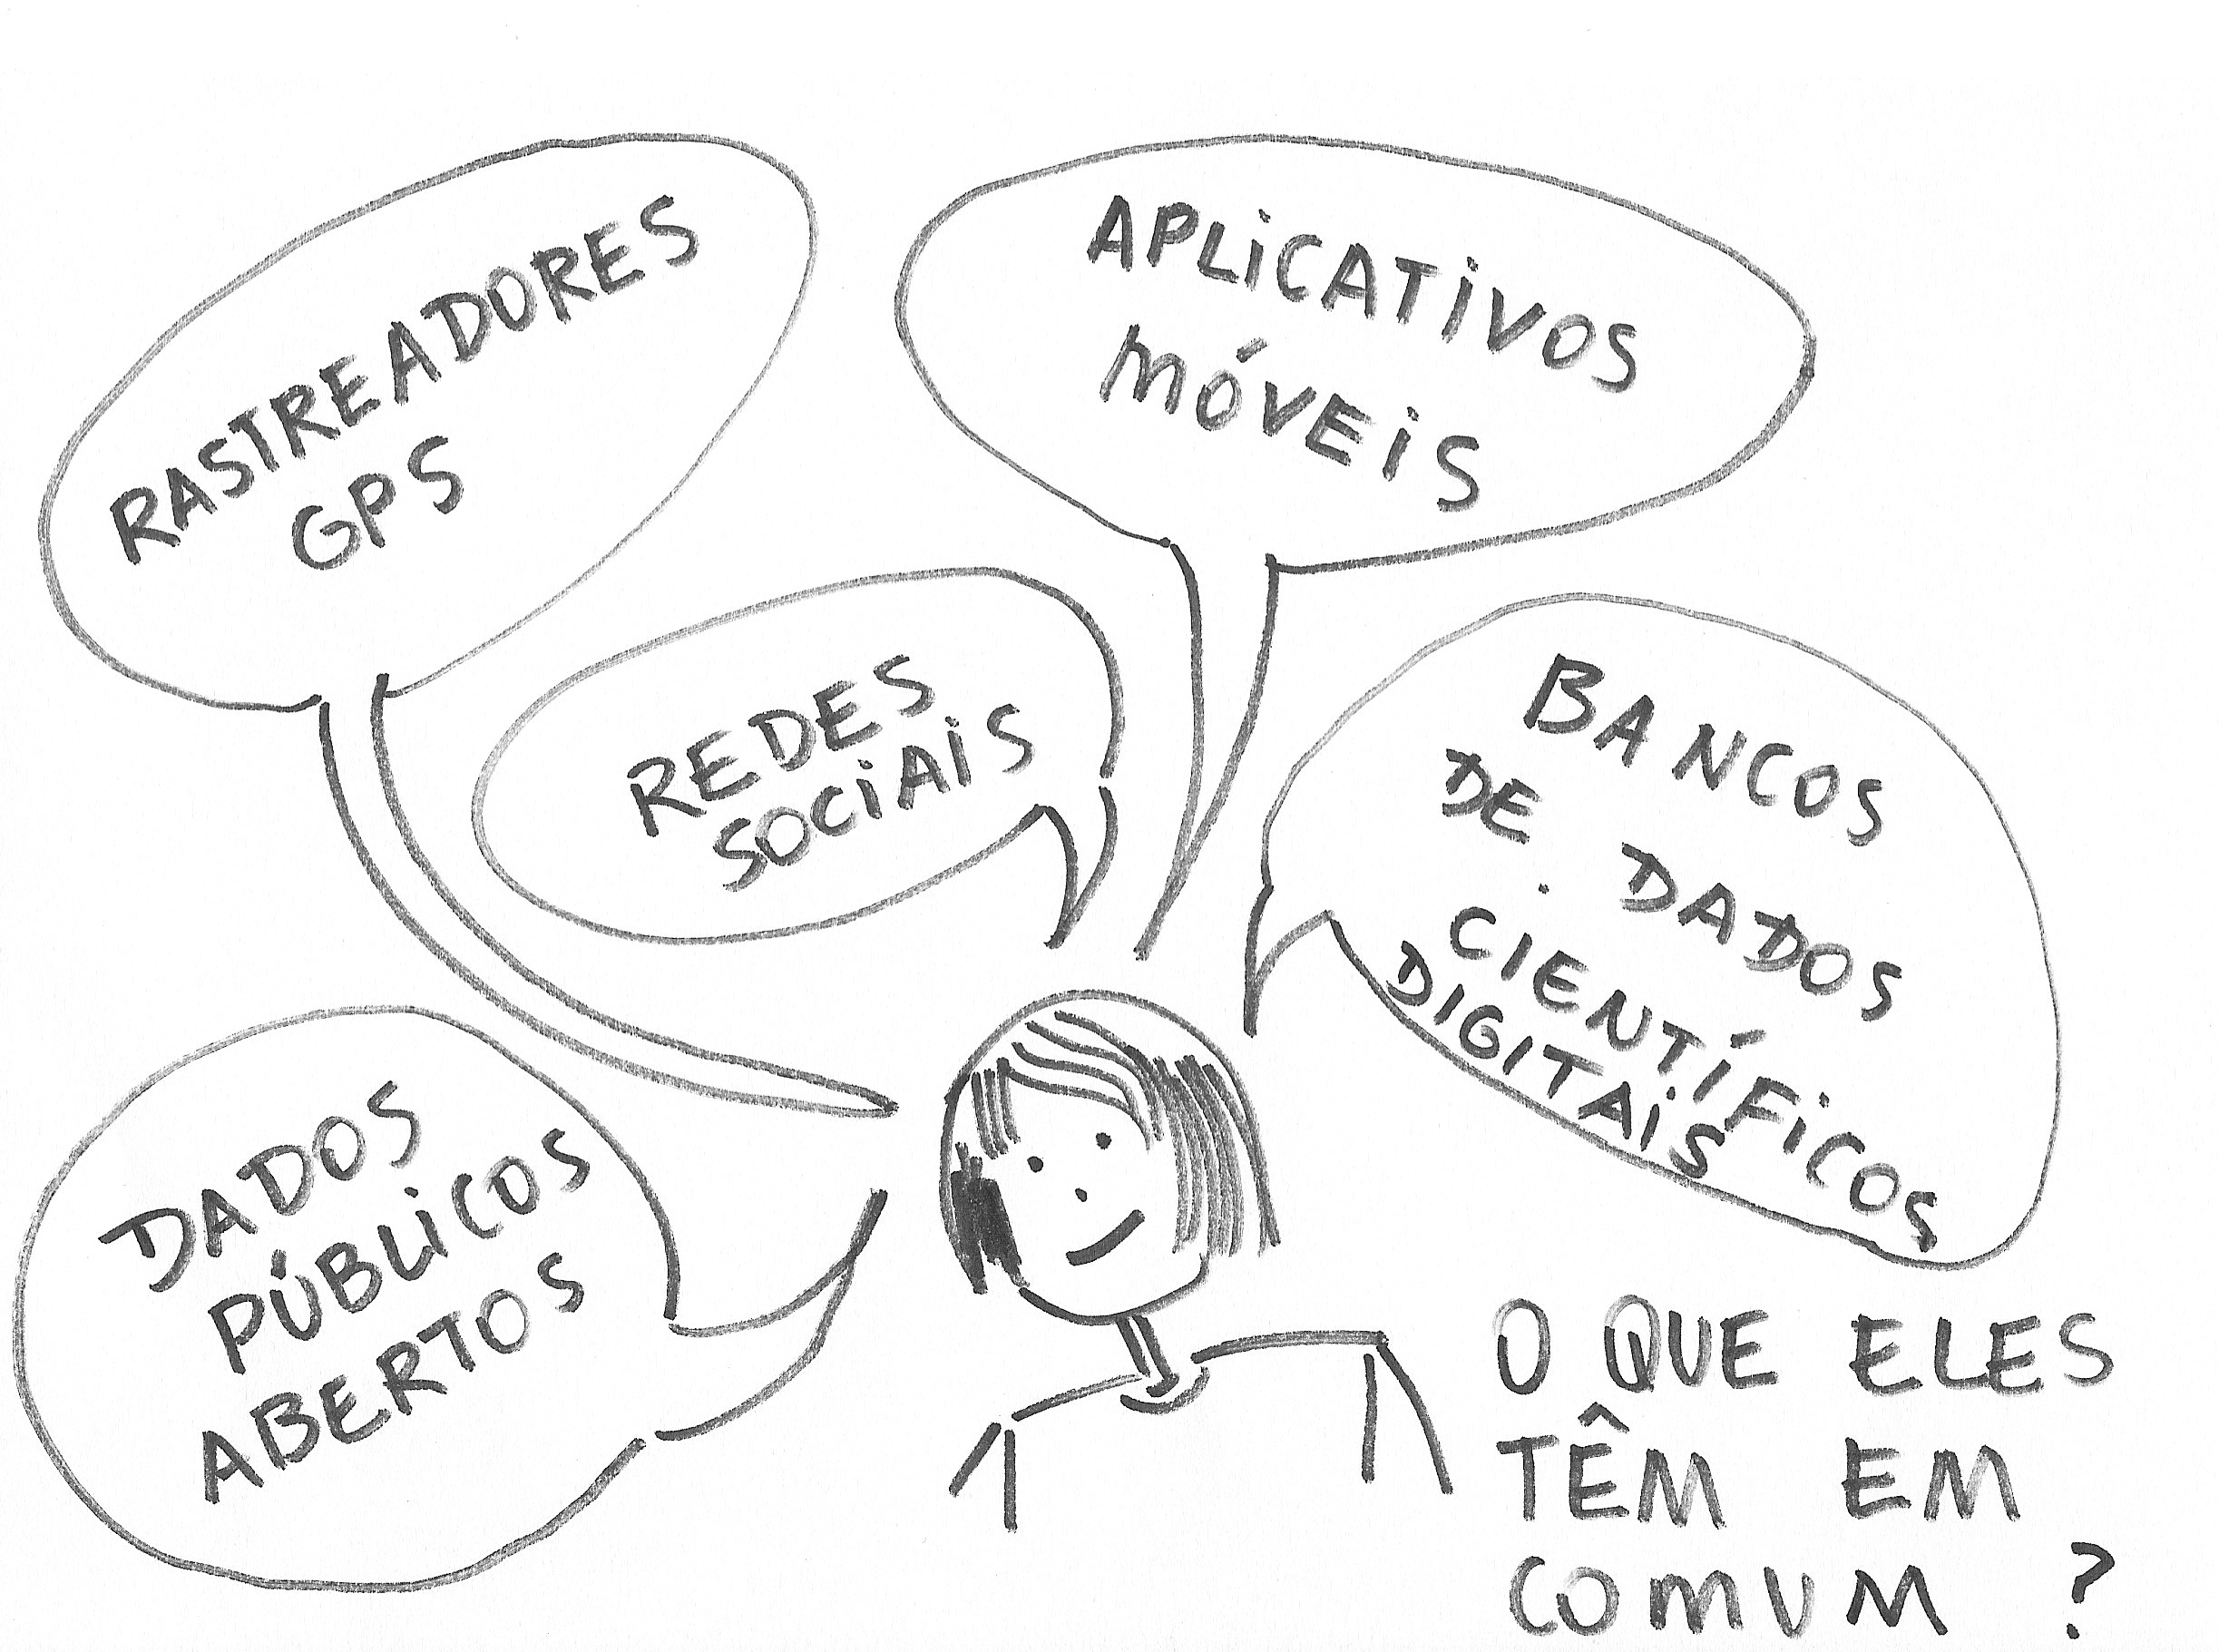 RASTREADORES
GPS
APLiCATiVOS
MÓVEiS
REDES
SOCiAiS
BANCOS
DE DADOS
CIENTÍFiCOS
DIGITAiS
DADOS
PÚBLiCOS
ABERTOS
O QUE ELES
TÊM EM
COMUM ?